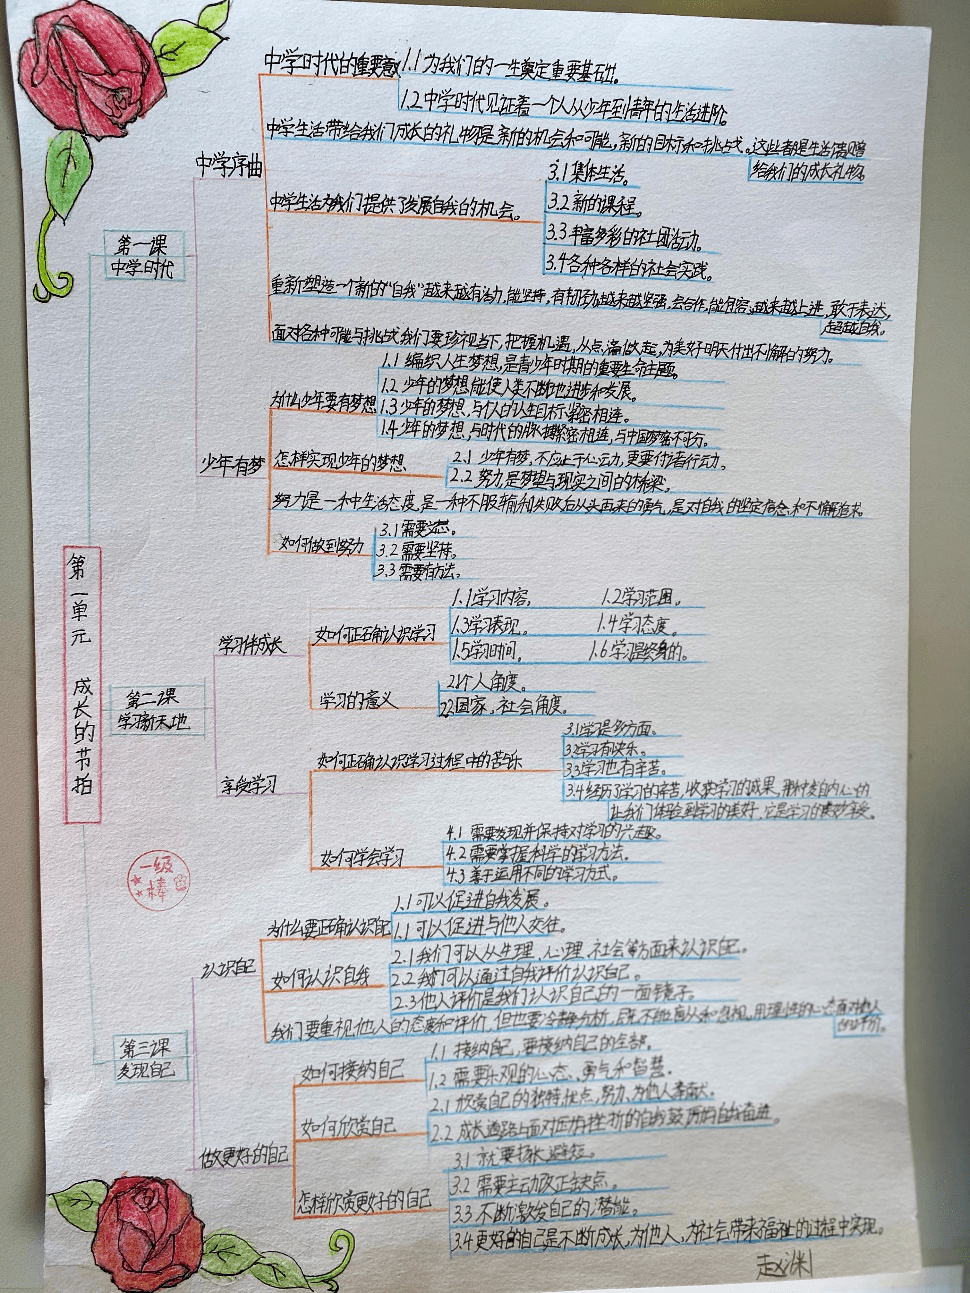 中学时代的重要意
1.1为我们的一生奠定重要基础。
1.2中学时代见证着一个人从少年到青年的生活进阶
中学生活带给我们成长的礼物是新的机会和可能,新的目标和挑战。这些都是生活馈赠
给我们的成长礼物。
中学序曲
3.1集体生活。
中学生活为我们提供了发展自我的机会。
3.2新的课程。
3.3丰富多彩的社团活动。
3.4各种各样的社会实践。
第一课
中学时代
重新塑造一个新的“自我”越来越有活力,能坚持,有韧劲越来越坚强,会合作,能包容,越来越上进,敢于表达,
超越自我。
面对各种可能与挑战我们要珍视当下,把握机遇,从点滴做起,为美好明天付出不懈的努力。
1.1编织人生梦想,是青少年时期的重要生命主题。
1.2少年的梦想能使人类不断地进步和发展。
为什么少年要有梦想
1.3少年的梦想,与个人的人生目标紧密相连。
1.4少年的梦想,与时代的脉搏紧密相连,与中国梦密不可分。
少年有梦
怎样实现少年的梦想
2.1少年有梦,不应止于心动,更要付诸行动。
2.2努力,是梦想与现实之间的桥梁。
努力是一种生活态度,是一种不服输和失败后从头再来的勇气,是对自我的坚定信念,和不懈追求
3.1需要立志。
如何做到努力
3.2需要坚持。
3.3需要有方法。
第一单元 成长的节拍
1.1学习内容, 1.2学习范围。
学习伴成长
如何正确认识学习
1.3学习表现。 1.4学习态度。
1.5学习时间, 1.6学习是终身的。
第二课
学习新天地
学习的意义
2.1个人角度。
2.2国家,社会角度。
3.1学习是多方面。
3.2学习有快乐。
如何正确认识学习过程中的苦与乐
3.3学习也有辛苦。
享受学习
3.4经历了学习的辛苦,收获学习的成果,那种发自内心的
让我们体验到学习的美好,它是学习的美妙享受。
4.1需要发现并保持对学习的兴趣。
如何学会学习
4.2需要掌握科学的学习方法。
4.3善于运用不同的学习方式。
一级棒
1.1可以促进自我发展。
为什么要正确认识自己
1.1可以促进与他人交往。
认识自己
2.1我们可以从生理,心理,社会等方面来认识自己。
如何认识自我
2.2我们可以通过自我评价认识自己。
2.3他人评价是我们认识自己的一面镜子。
我们要重视他人的态度和评价,但也要冷静分析,既不能盲从和忽视,用理性的心态面对他人
的评价。
第三课
发现自己
1.1接纳自己,要接纳自己的全部。
如何接纳自己
1.2需要乐观的心态、勇气和智慧。
2.1欣赏自己的独特优点,努力,为他人奉献。
如何欣赏自己
2.2成长道路上面对压力挫折的自我鼓励的自我奋进。
做更好的自己
3.1就要扬长避短。
怎样欣赏更好的自己
3.2需要主动改正缺点。
3.3不断激发自己的潜能。
3.4更好的自己是不断成长,为他人,为社会带来福祉的过程中实现。
赵渊